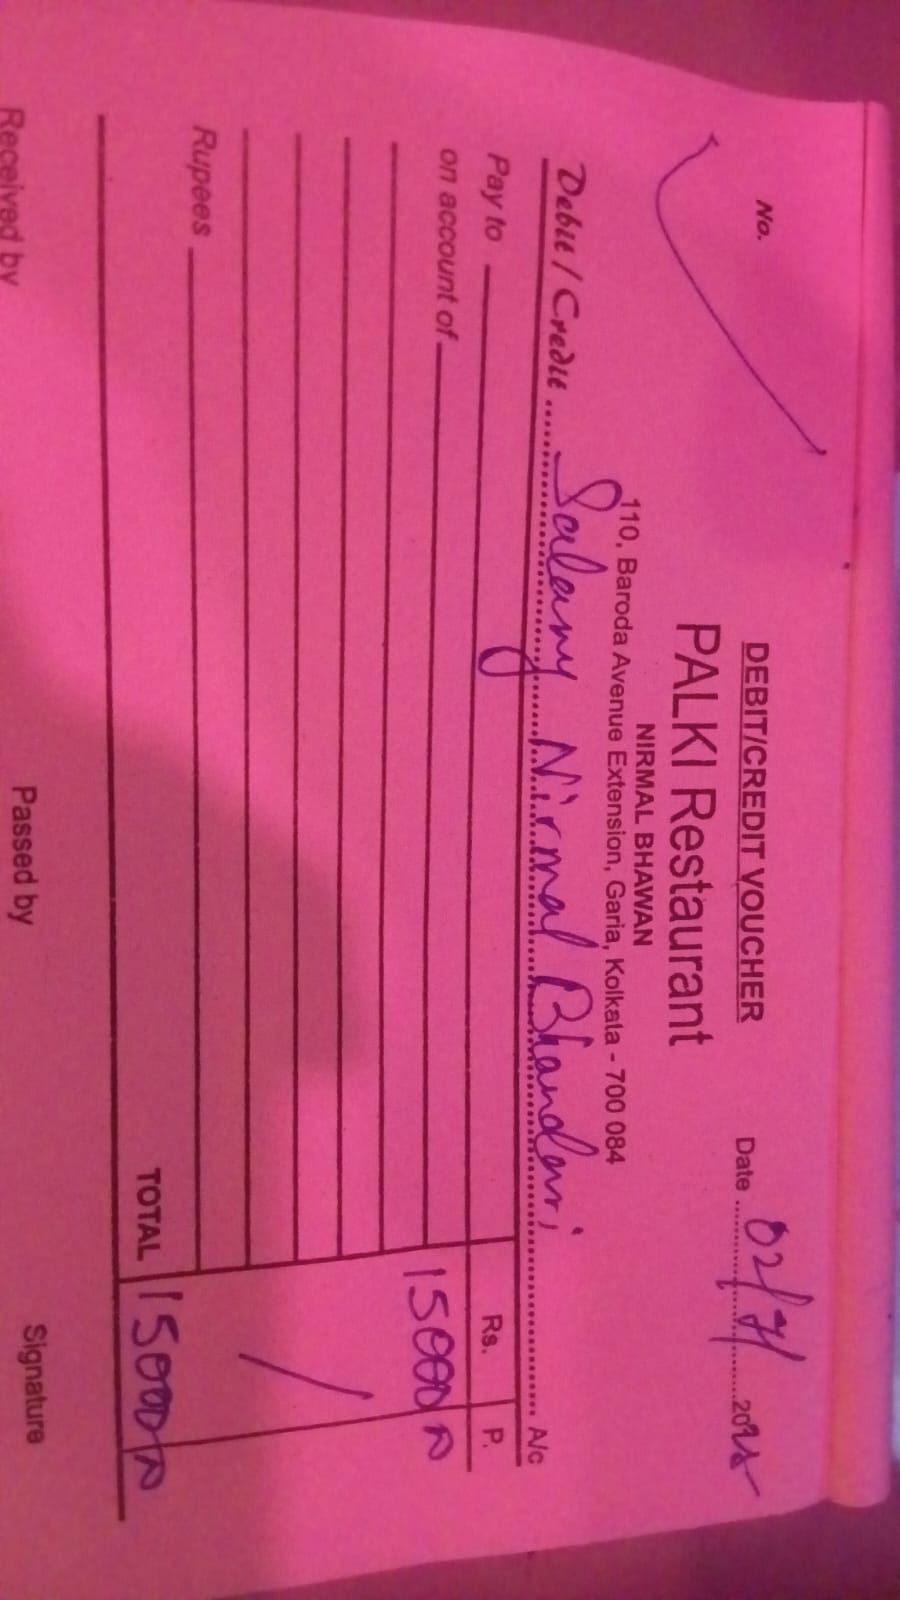 DEBIT/CREDIT VOUCHER
No. Date 02/7/
PALKI Restaurant
NIRMAL BHAWAN
110, Baroda Avenue Extension, Garia, Kolkata - 700 084
Debit / Credit Salary Nirmal Bhandari A/c
Pay to Rs. P.
on account of 15000
Rupees
TOTAL 15000
Received by Passed by Signature